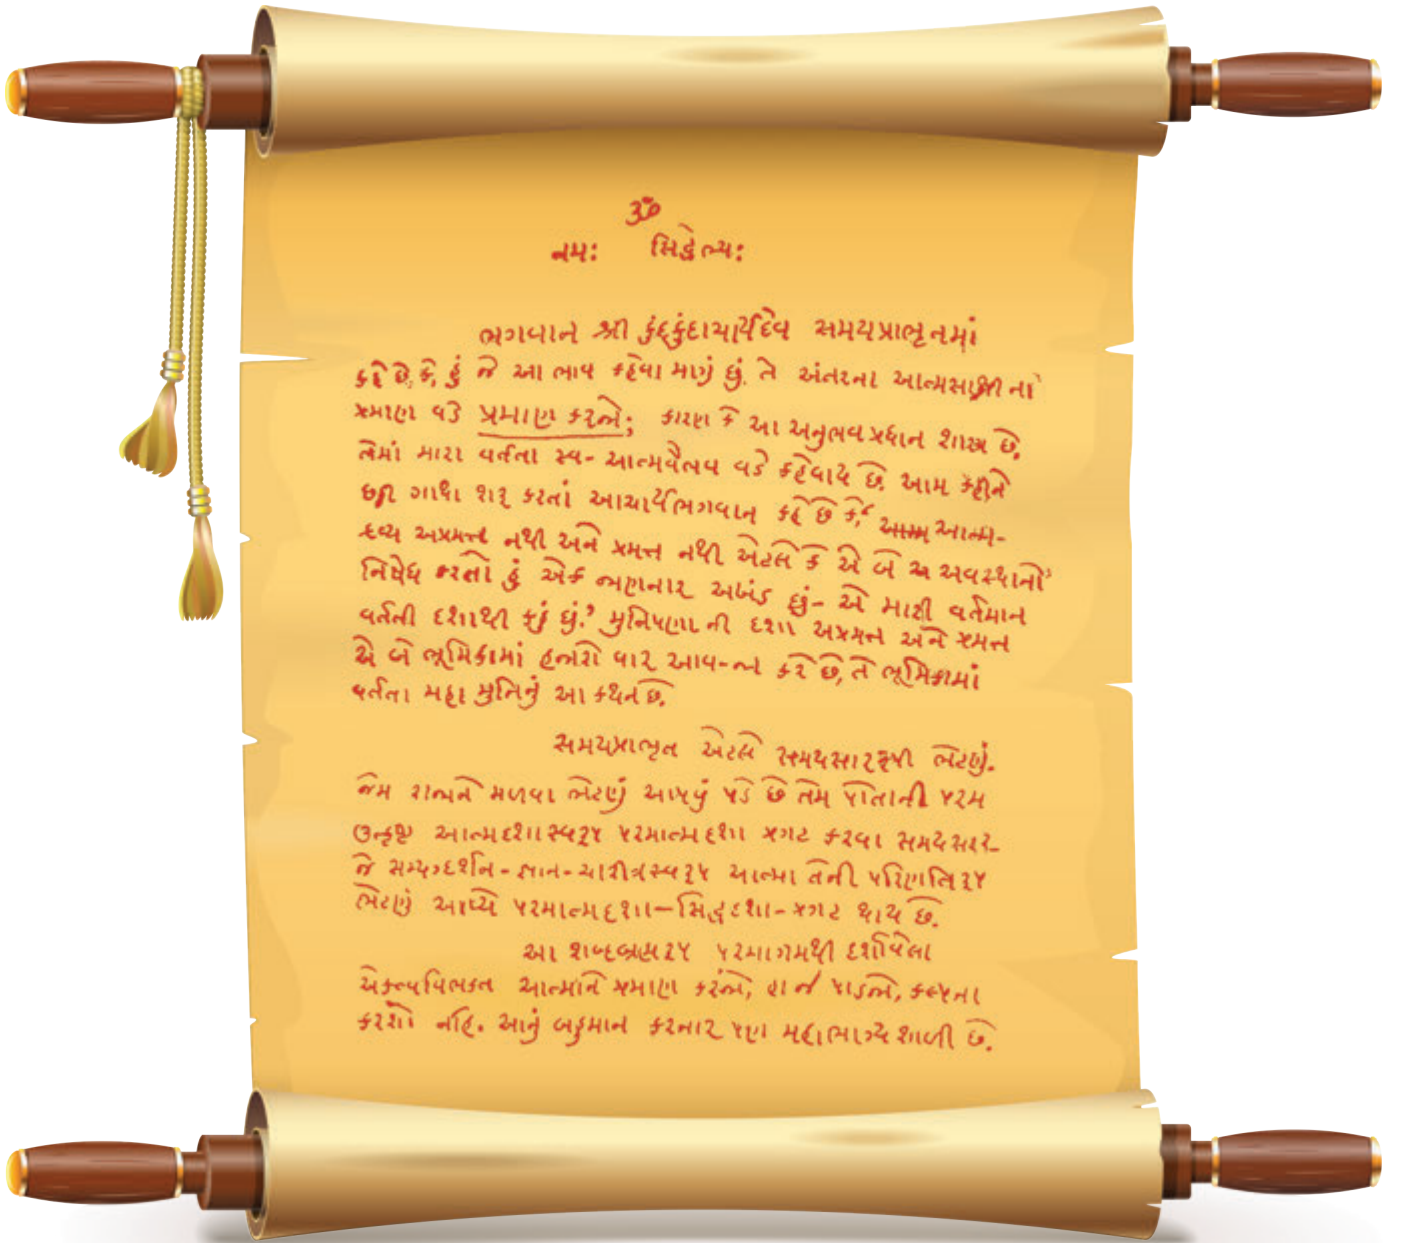 ॐ
નમઃ સિદ્ધેભ્યઃ
ભગવાન શ્રી કુંદકુંદાચાર્યદેવ સમયપ્રાભૃતમાં
કહે છે કે, હું જે આ ભાવ કહેવા માગું છું, તે અંતરના આત્મસાક્ષીના
પ્રમાણ વડે પ્રમાણ કરજો; કારણ કે આ અનુભવપ્રધાન શાસ્ત્ર છે,
તેમાં મારા વર્તતા સ્વ-આત્મવૈભવ વડે કહેવાય છે. આમ કહીને
છઠ્ઠી ગાથા શરૂ કરતાં આચાર્યભગવાન કહે છે કે, ‘ આત્મ-
દ્રવ્ય અપ્રમત્ત નથી અને પ્રમત્ત નથી એટલે કે એ બે અવસ્થાનો
નિષેધ કરતો હું એક જાણનાર અખંડ છું- એ મારી વર્તમાન
વર્તતી દશાથી કહું છું.’ મુનિપણાની દશા અપ્રમત્ત અને પ્રમત્ત
એ બે ભૂમિકામાં હજારો વાર આવ-જા કરે છે, તે ભૂમિકામાં
વર્તતા મહા મુનિનું આ કથન છે.
સમયપ્રાભૃત એટલે સમયસારરૂપી ભેટણું.
જેમ રાજાને મળવા ભેટણું આપવું પડે છે તેમ પોતાની પરમ
ઉત્કૃષ્ટ આત્મદશાસ્વરૂપ પરમાત્મદશા પ્રગટ કરવા સમયસાર-
જે સમ્યગ્દર્શન-જ્ઞાન-ચારિત્રસ્વરૂપ આત્મા તેની પરિણતિરૂપ
ભેટણું આપ્યે પરમાત્મદશા-સિદ્ધદશા-પ્રગટ થાય છે.
આ શબ્દબ્રહ્મરૂપ પરમાગમથી દર્શાવેલા
એકત્વવિભક્ત આત્માને પ્રમાણ કરજો, હા જ પાડજો, કલ્પના
કરશો નહિ. આનું બહુમાન કરનાર પણ મહાભાગ્યશાળી છે.